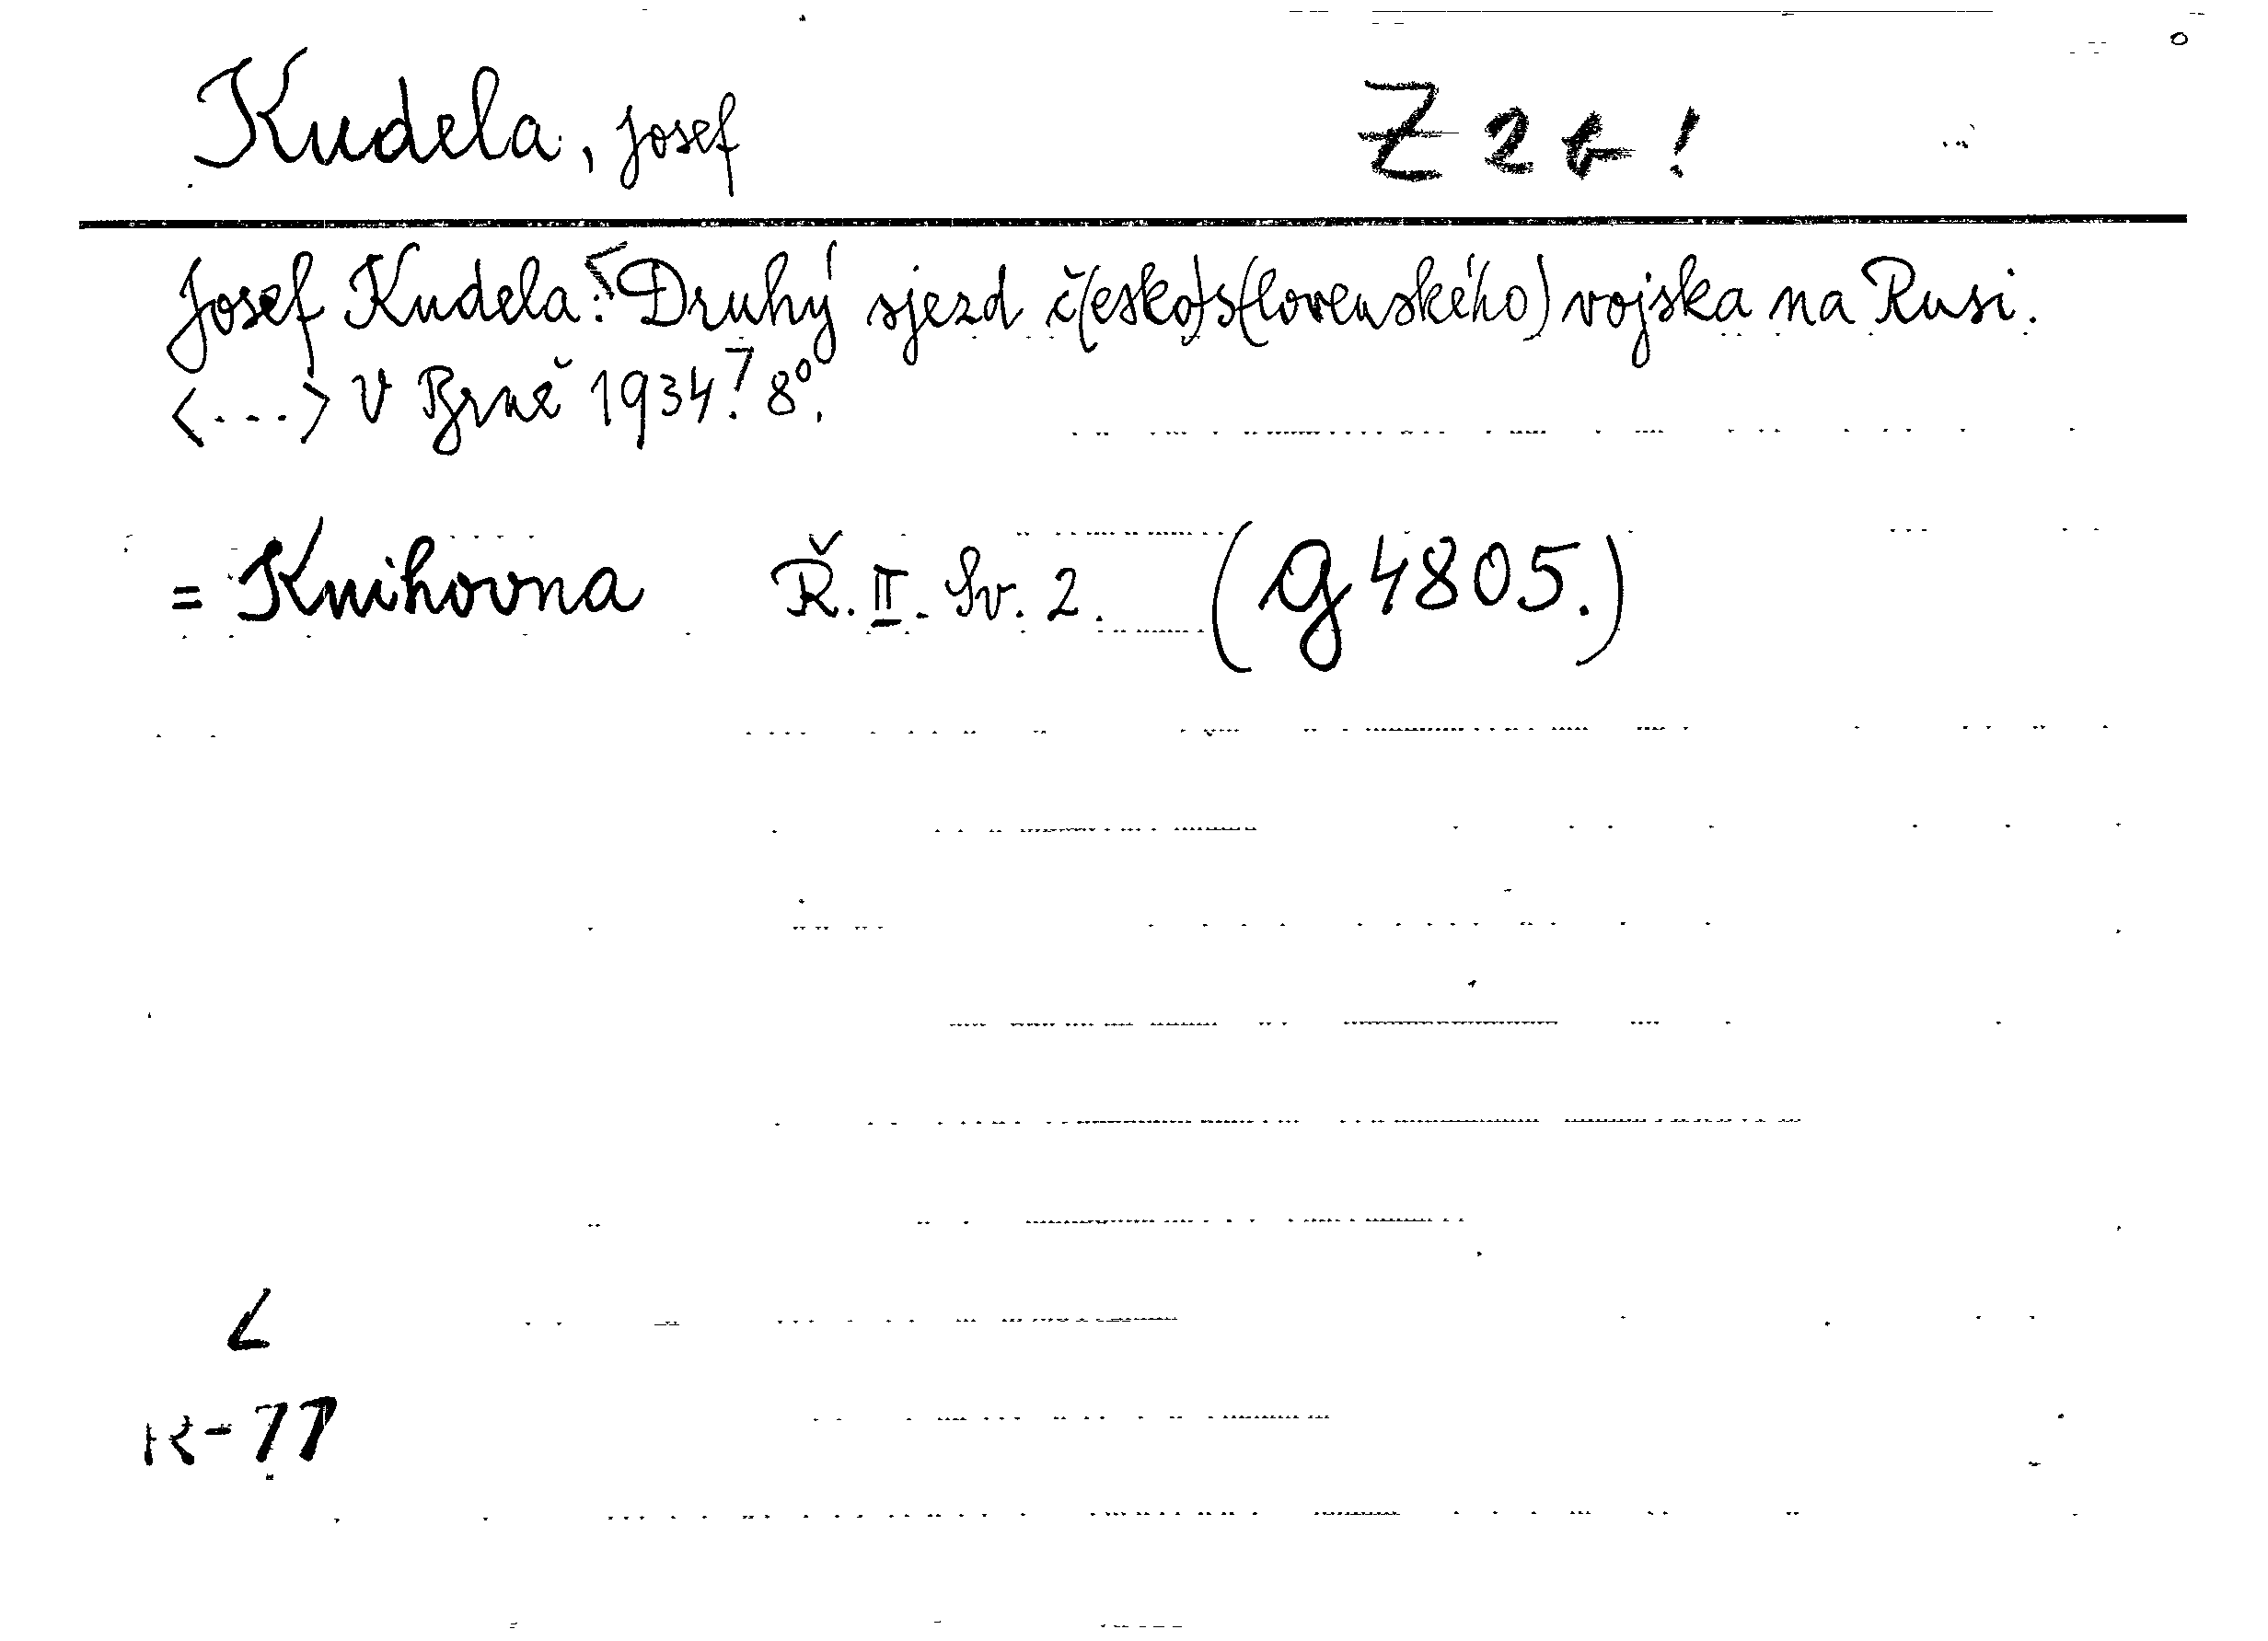 Kudela, Josef Z 2 b!
Josef Kudela: Druhý sjezd č(esko)s(lovenského) vojska na Rusi.
<...> V Brně 1934. 8°.
= Knihovna Ř. II. Sv. 2. (G 4805.)
K-77